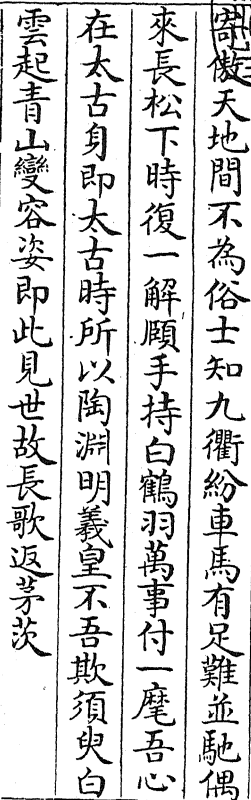 寄傲天地間不為俗士知九衢紛車馬有足難並馳偶
來長松下時復一解頤手持白鶴羽萬事付一麾吾心
在太古身即太古時所以陶淵明羲皇不吾欺須臾白
雲起青山變容姿即此見世故長歌返茅茨